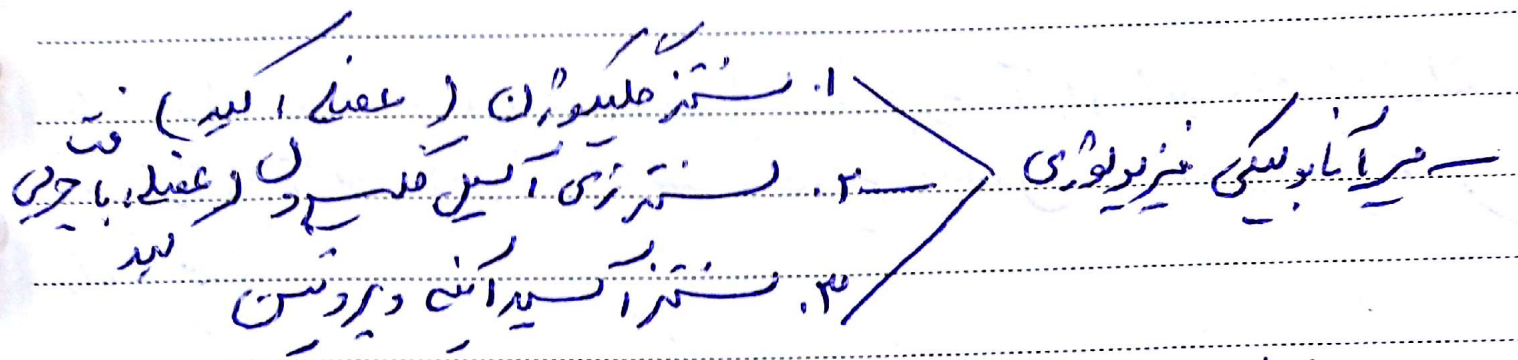 مسیر آنابولیکی فیزیولوژی
۱. سنتز گلیکوژن (عضله، کبد)
۲. سنتز تری آسیل گلیسرول (عضله، بافت چربی
کبد
۳. سنتز آسیدآمینه و پروتئین